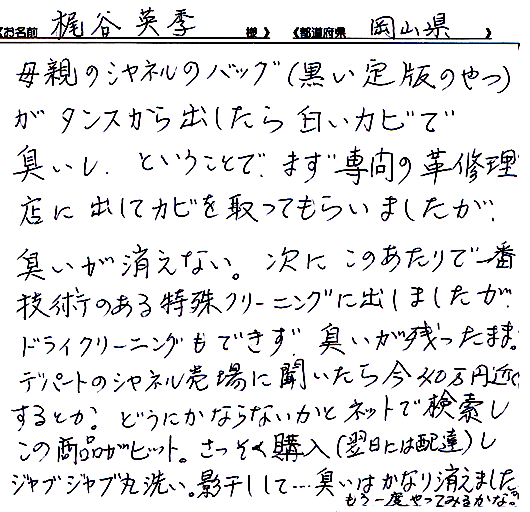 《お名前 梶谷英季 様》 《都道府県 岡山県 》
母親のシャネルのバッグ(黒い定版のやつ)
がタンスから出したら白いカビで
臭いし、ということで、まず専門の革修理
店に出してカビを取ってもらいましたが、
臭いが消えない。次にこのあたりで一番
技術のある特殊クリーニングに出しましたが、
ドライクリーニングもできず臭いが残ったまま。
デパートのシャネル売場に聞いたら今40万円近く
するとか。どうにかならないかとネットで検索し
この商品がヒット。さっそく購入(翌日には配達)し
ジャブジャブ丸洗い。影干しして…臭いはかなり消えました。
もう一度やってみるかな。